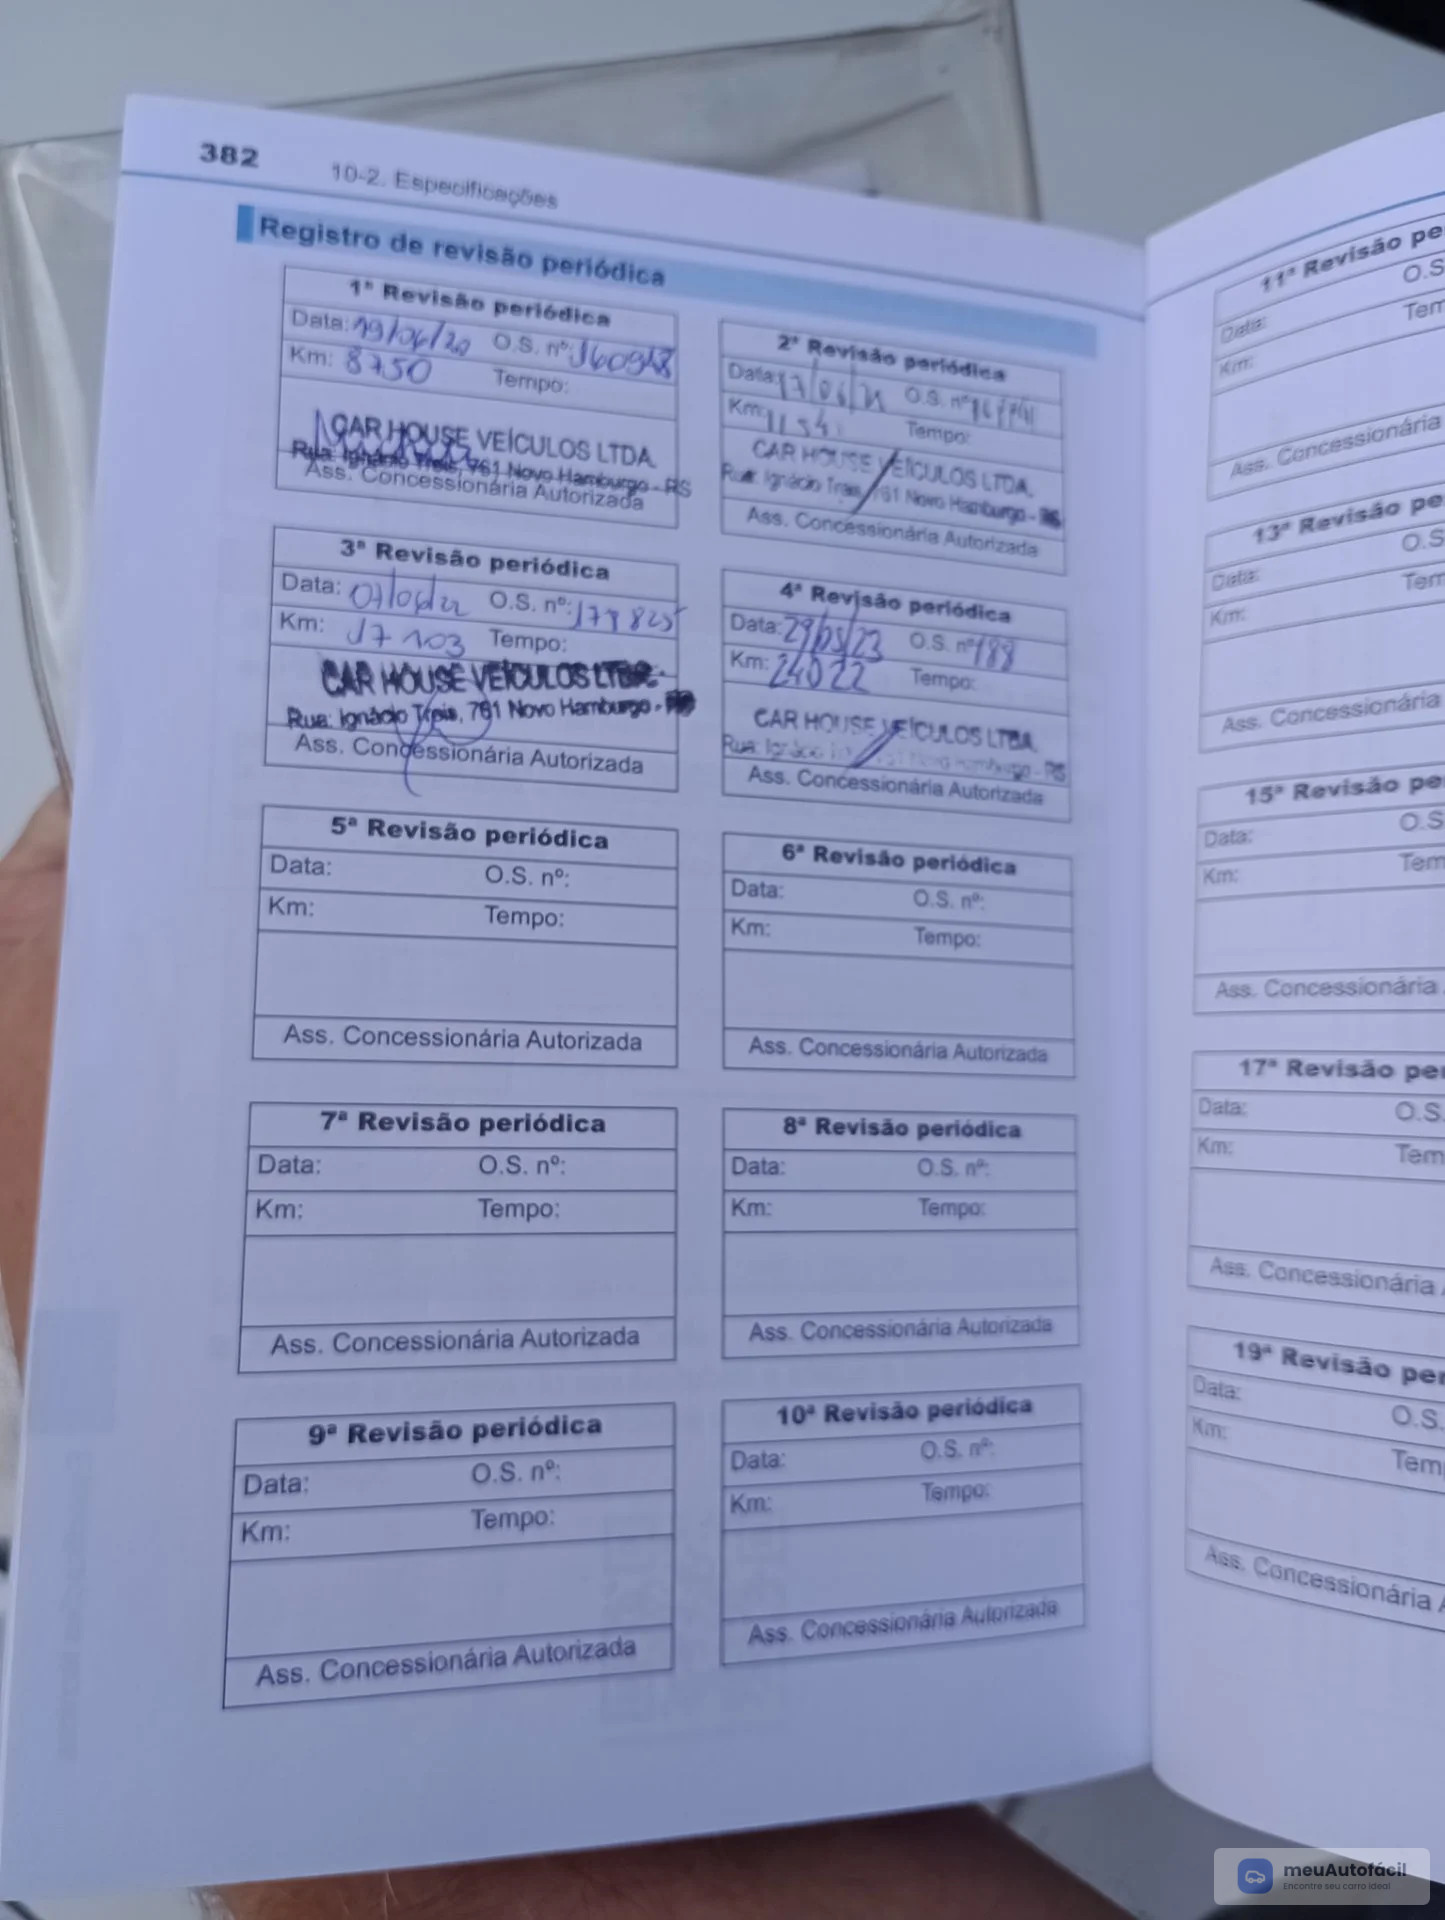 382
10-2. Especificações
Registro de revisão periódica
1ª Revisão periódica
Data: 19/06/20 O.S. nº: 160948
Km: 8750 Tempo:
CAR HOUSE VEÍCULOS LTDA.
Rua: Ignácio Treis, 761 Novo Hamburgo - RS
Ass. Concessionária Autorizada
2ª Revisão periódica
Data: 17/06/21 O.S. nº
Km: Tempo:
CAR HOUSE VEÍCULOS LTDA.
Rua: Ignácio Treis, 761 Novo Hamburgo - RS
Ass. Concessionária Autorizada
3ª Revisão periódica
Data: 07/06/22 O.S. nº: 178825
Km: 17103 Tempo:
CAR HOUSE VEÍCULOS LTDA.
Rua: Ignácio Treis, 761 Novo Hamburgo -
Ass. Concessionária Autorizada
4ª Revisão periódica
Data: 29/05/23 O.S. nº 188
Km: 24022 Tempo:
CAR HOUSE VEÍCULOS LTDA.
Rua: Ignácio Novo Hamburgo - RS
Ass. Concessionária Autorizada
5ª Revisão periódica
Data: O.S. nº:
Km: Tempo:
Ass. Concessionária Autorizada
6ª Revisão periódica
Data: O.S. nº:
Km: Tempo:
Ass. Concessionária Autorizada
7ª Revisão periódica
Data: O.S. nº:
Km: Tempo:
Ass. Concessionária Autorizada
8ª Revisão periódica
Data: O.S. nº:
Km: Tempo:
Ass. Concessionária Autorizada
9ª Revisão periódica
Data: O.S. nº:
Km: Tempo:
Ass. Concessionária Autorizada
10ª Revisão periódica
Data: O.S. nº:
Km: Tempo:
Ass. Concessionária Autorizada
11ª Revisão pe
Data: O.S
Km: Tem
Ass. Concessionária
13ª Revisão pe
Data: O.S
Km: Tem
Ass. Concessionária
15ª Revisão pe
Data: O.S
Km: Tem
Ass. Concessionária
17ª Revisão pe
Data: O.S.
Km: Tem
Ass. Concessionária
19ª Revisão per
Data: O.S.
Km: Tem
Ass. Concessionária A
meuAutofácil
Encontre seu carro ideal